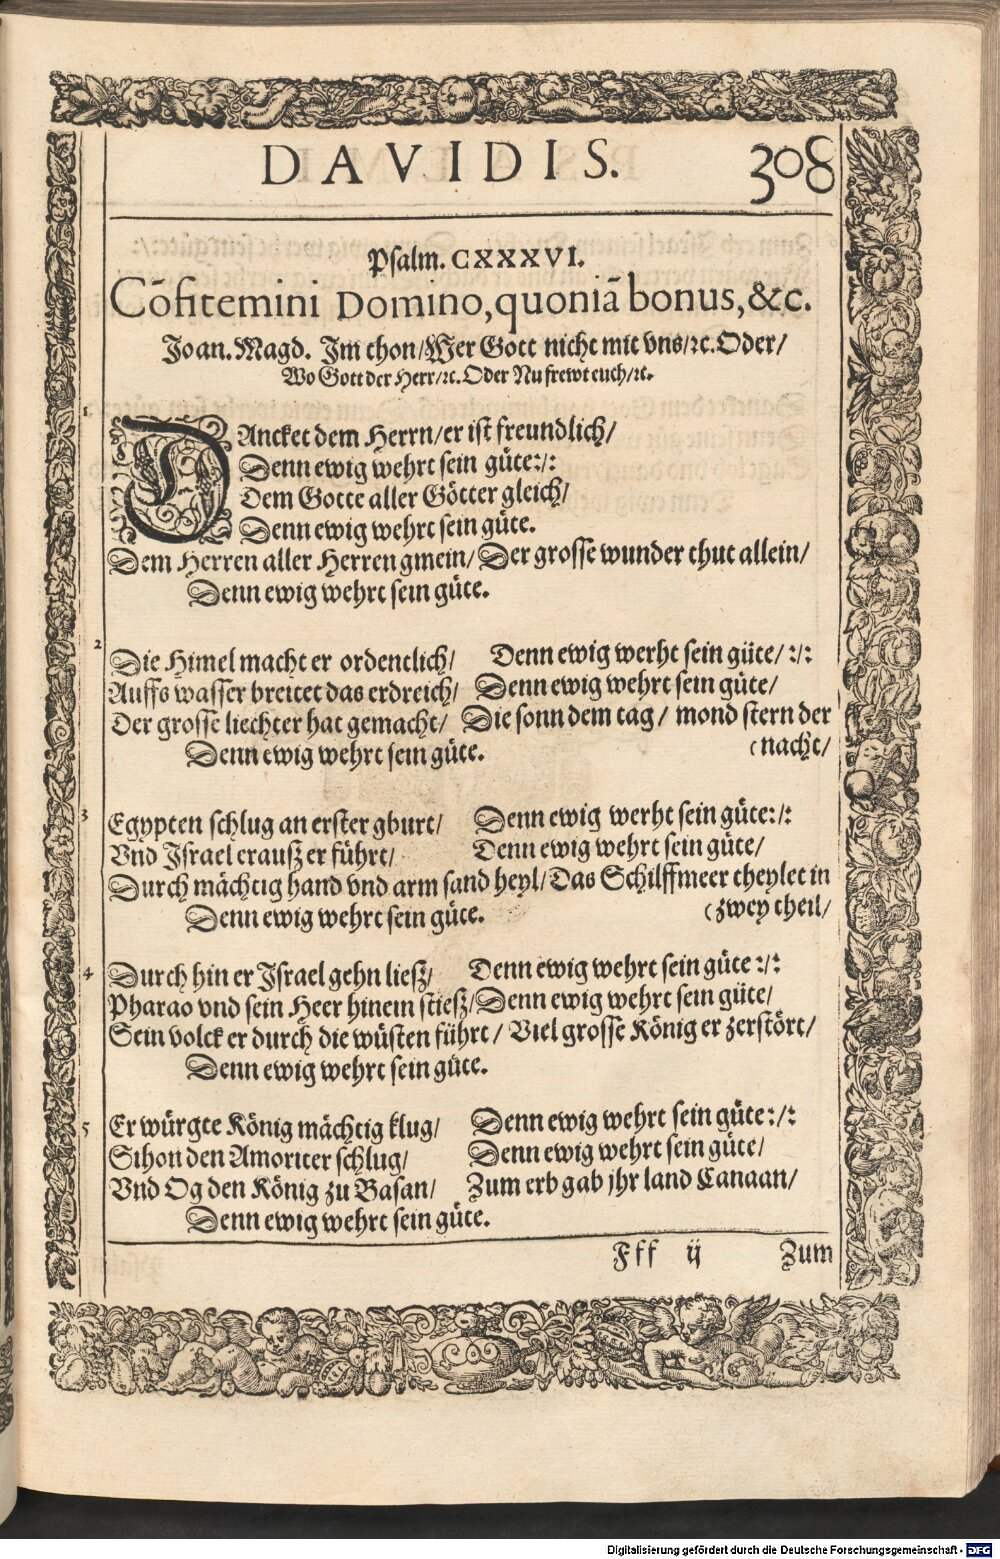 DAVIDIS. 308
Psalm. CXXXVI.
Cōfitemini Domino, quoniã bonus, &c.
Joan. Magd. Im thon/Wer Gott nicht mit vns/ꝛc. Oder/
Wo Gott der Herr/ꝛc. Oder Nu frewt euch/ꝛc.
1. DAncket dem Herrn/er ist freundlich/
Denn ewig wehrt sein güte:/:
Dem Gotte aller Götter gleich/
Denn ewig wehrt sein güte.
Dem Herren aller Herren gmein/ Der grosse wunder thut allein/
Denn ewig wehrt sein güte.
2 Die Himel macht er ordentlich/ Denn ewig werht sein güte/:/:
Auffs wasser breitet das erdreich/ Denn ewig wehrt sein güte/
Der grosse liechter hat gemacht/ Die sonn dem tag/ mond stern der
Denn ewig wehrt sein güte. (nacht/
3 Egypten schlug an erster gburt/ Denn ewig werht sein güte:/:
Vnd Israel erausz er führt/ Denn ewig wehrt sein güte/
Durch mächtig hand vnd arm sand heyl/Das Schilffmeer theylet in
Denn ewig wehrt sein güte. (zwey theil/
4 Durch hin er Israel gehn liesz/ Denn ewig wehrt sein güte:/:
Pharao vnd sein Heer hinein stiesz/Denn ewig wehrt sein güte/
Sein volck er durch die wüsten führt/ Viel grosse König er zerstört/
Denn ewig wehrt sein güte.
5 Er würgte König mächtig klug/ Denn ewig wehrt sein güte:/:
Sihon den Amoriter schlug/ Denn ewig wehrt sein güte/
Vnd Og den König zu Basan/ Zum erb gab jhr land Canaan/
Denn ewig wehrt sein güte.
Fff ij Zum
Digitalisierung gefördert durch die Deutsche Forschungsgemeinschaft - DFG